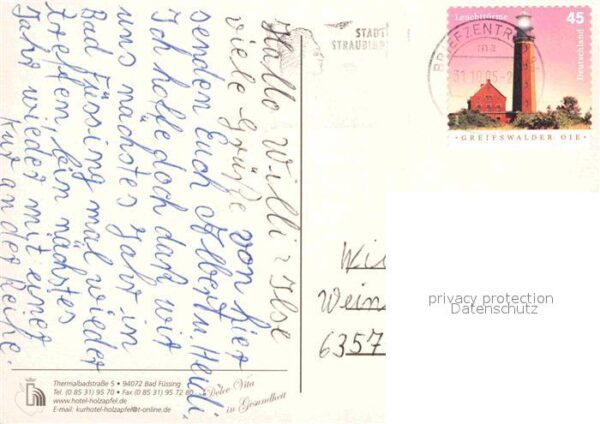 Hallo Willi u. Ilse
viele Grüße von hier
senden Euch Albert u. Heidi.
Ich hoffe doch das wir
uns nächstes Jahr in
Bad Füssing mal wieder
treffen, bin nächstes
Jahr wieder mit einer
Kur an der Reihe.
STADT
STRAUBING
BRIEFZENTRUM
31.10.05
Leuchttürme
45
Deutschland
GREIFSWALDER OIE
Wi
Wein
6357
privacy protection
Datenschutz
Thermalbadstraße 5 • 94072 Bad Füssing
Tel. (0 85 31) 95 70 • Fax (0 85 31) 95 72 80
www.hotel-holzapfel.de
E-mail: kurhotel-holzapfel@t-online.de
Dolce Vita
in Gesundheit